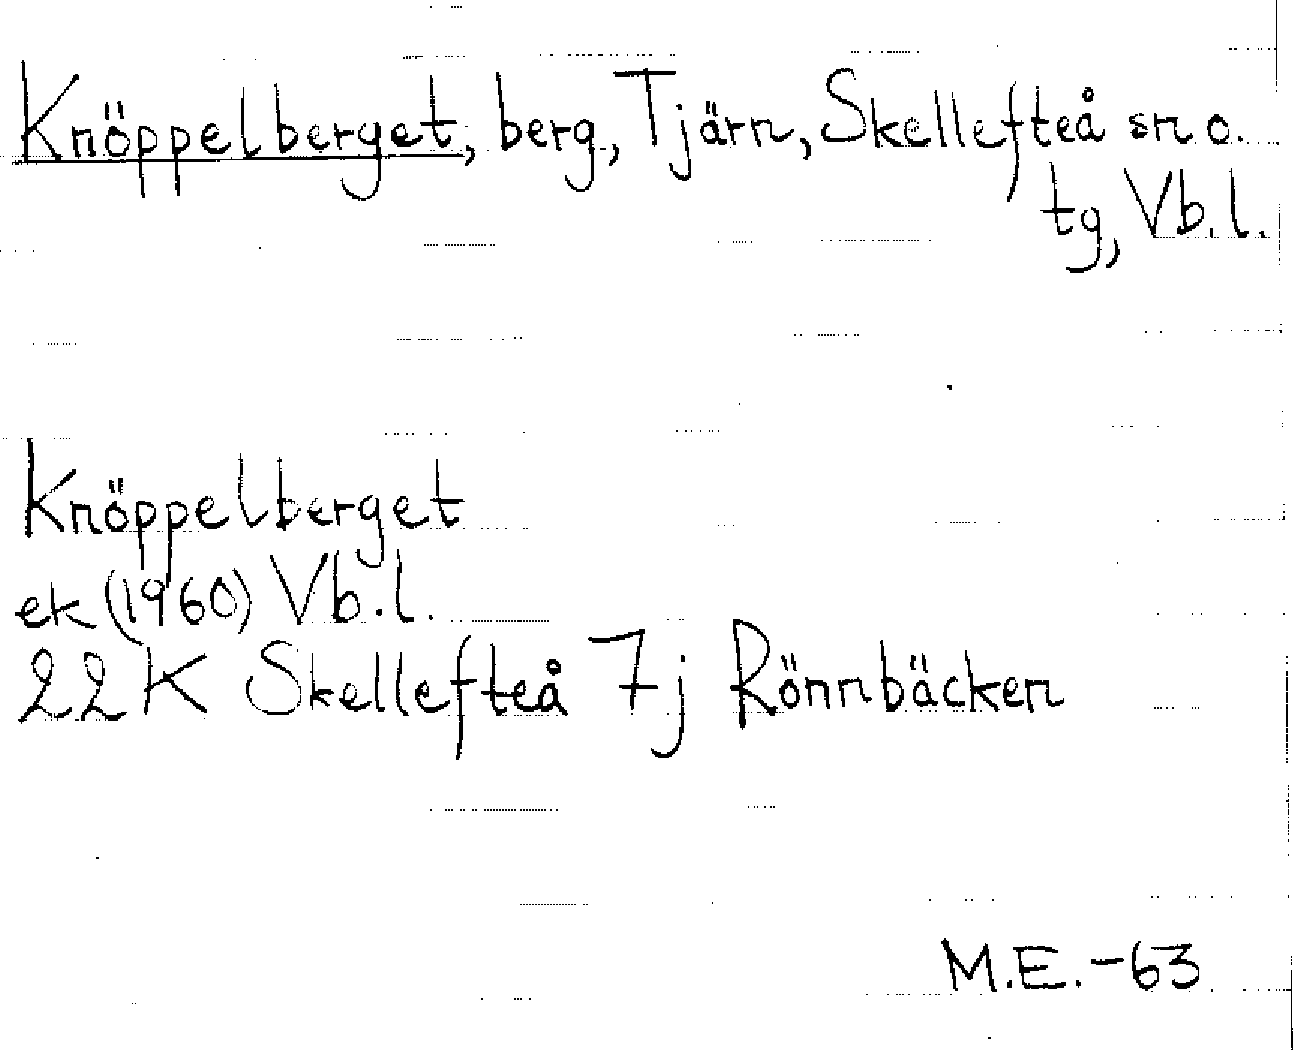 Knöppelberget, berg, Tjärn, Skellefteå sn o.
tg, Vb.l.
Knöppelberget
ek (1960) Vb.l.
22K Skellefteå 7j Rönnbäcken
M.E.-63